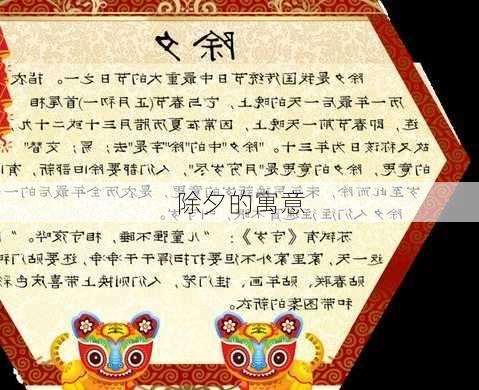 除夕
除夕是我国传统节日中最重大的节日之一。指农
历一年最后一天的晚上，它与春节(正月初一)首尾相
连，即春节前一天晚上，因常在夏历腊月三十或二十九，
故又称该日为年三十。“除夕”中的“除”字是“去；易；交替”
的意思，除夕的意思是“月穷岁尽”，人们都要除旧部新，有旧
岁至此而除，来年另换新岁的意思，是农历全年最后
除夕人们往往通宵不眠，叫守岁
除夕的寓意
苏轼有《守岁》：“儿童强不睡，相守夜欢哗。”
这一天，家里家外不但要打扫得干干净净，还要贴门神
贴春联、贴年画、挂门笼，人们则换上带喜庆色彩
和带图案的新衣。